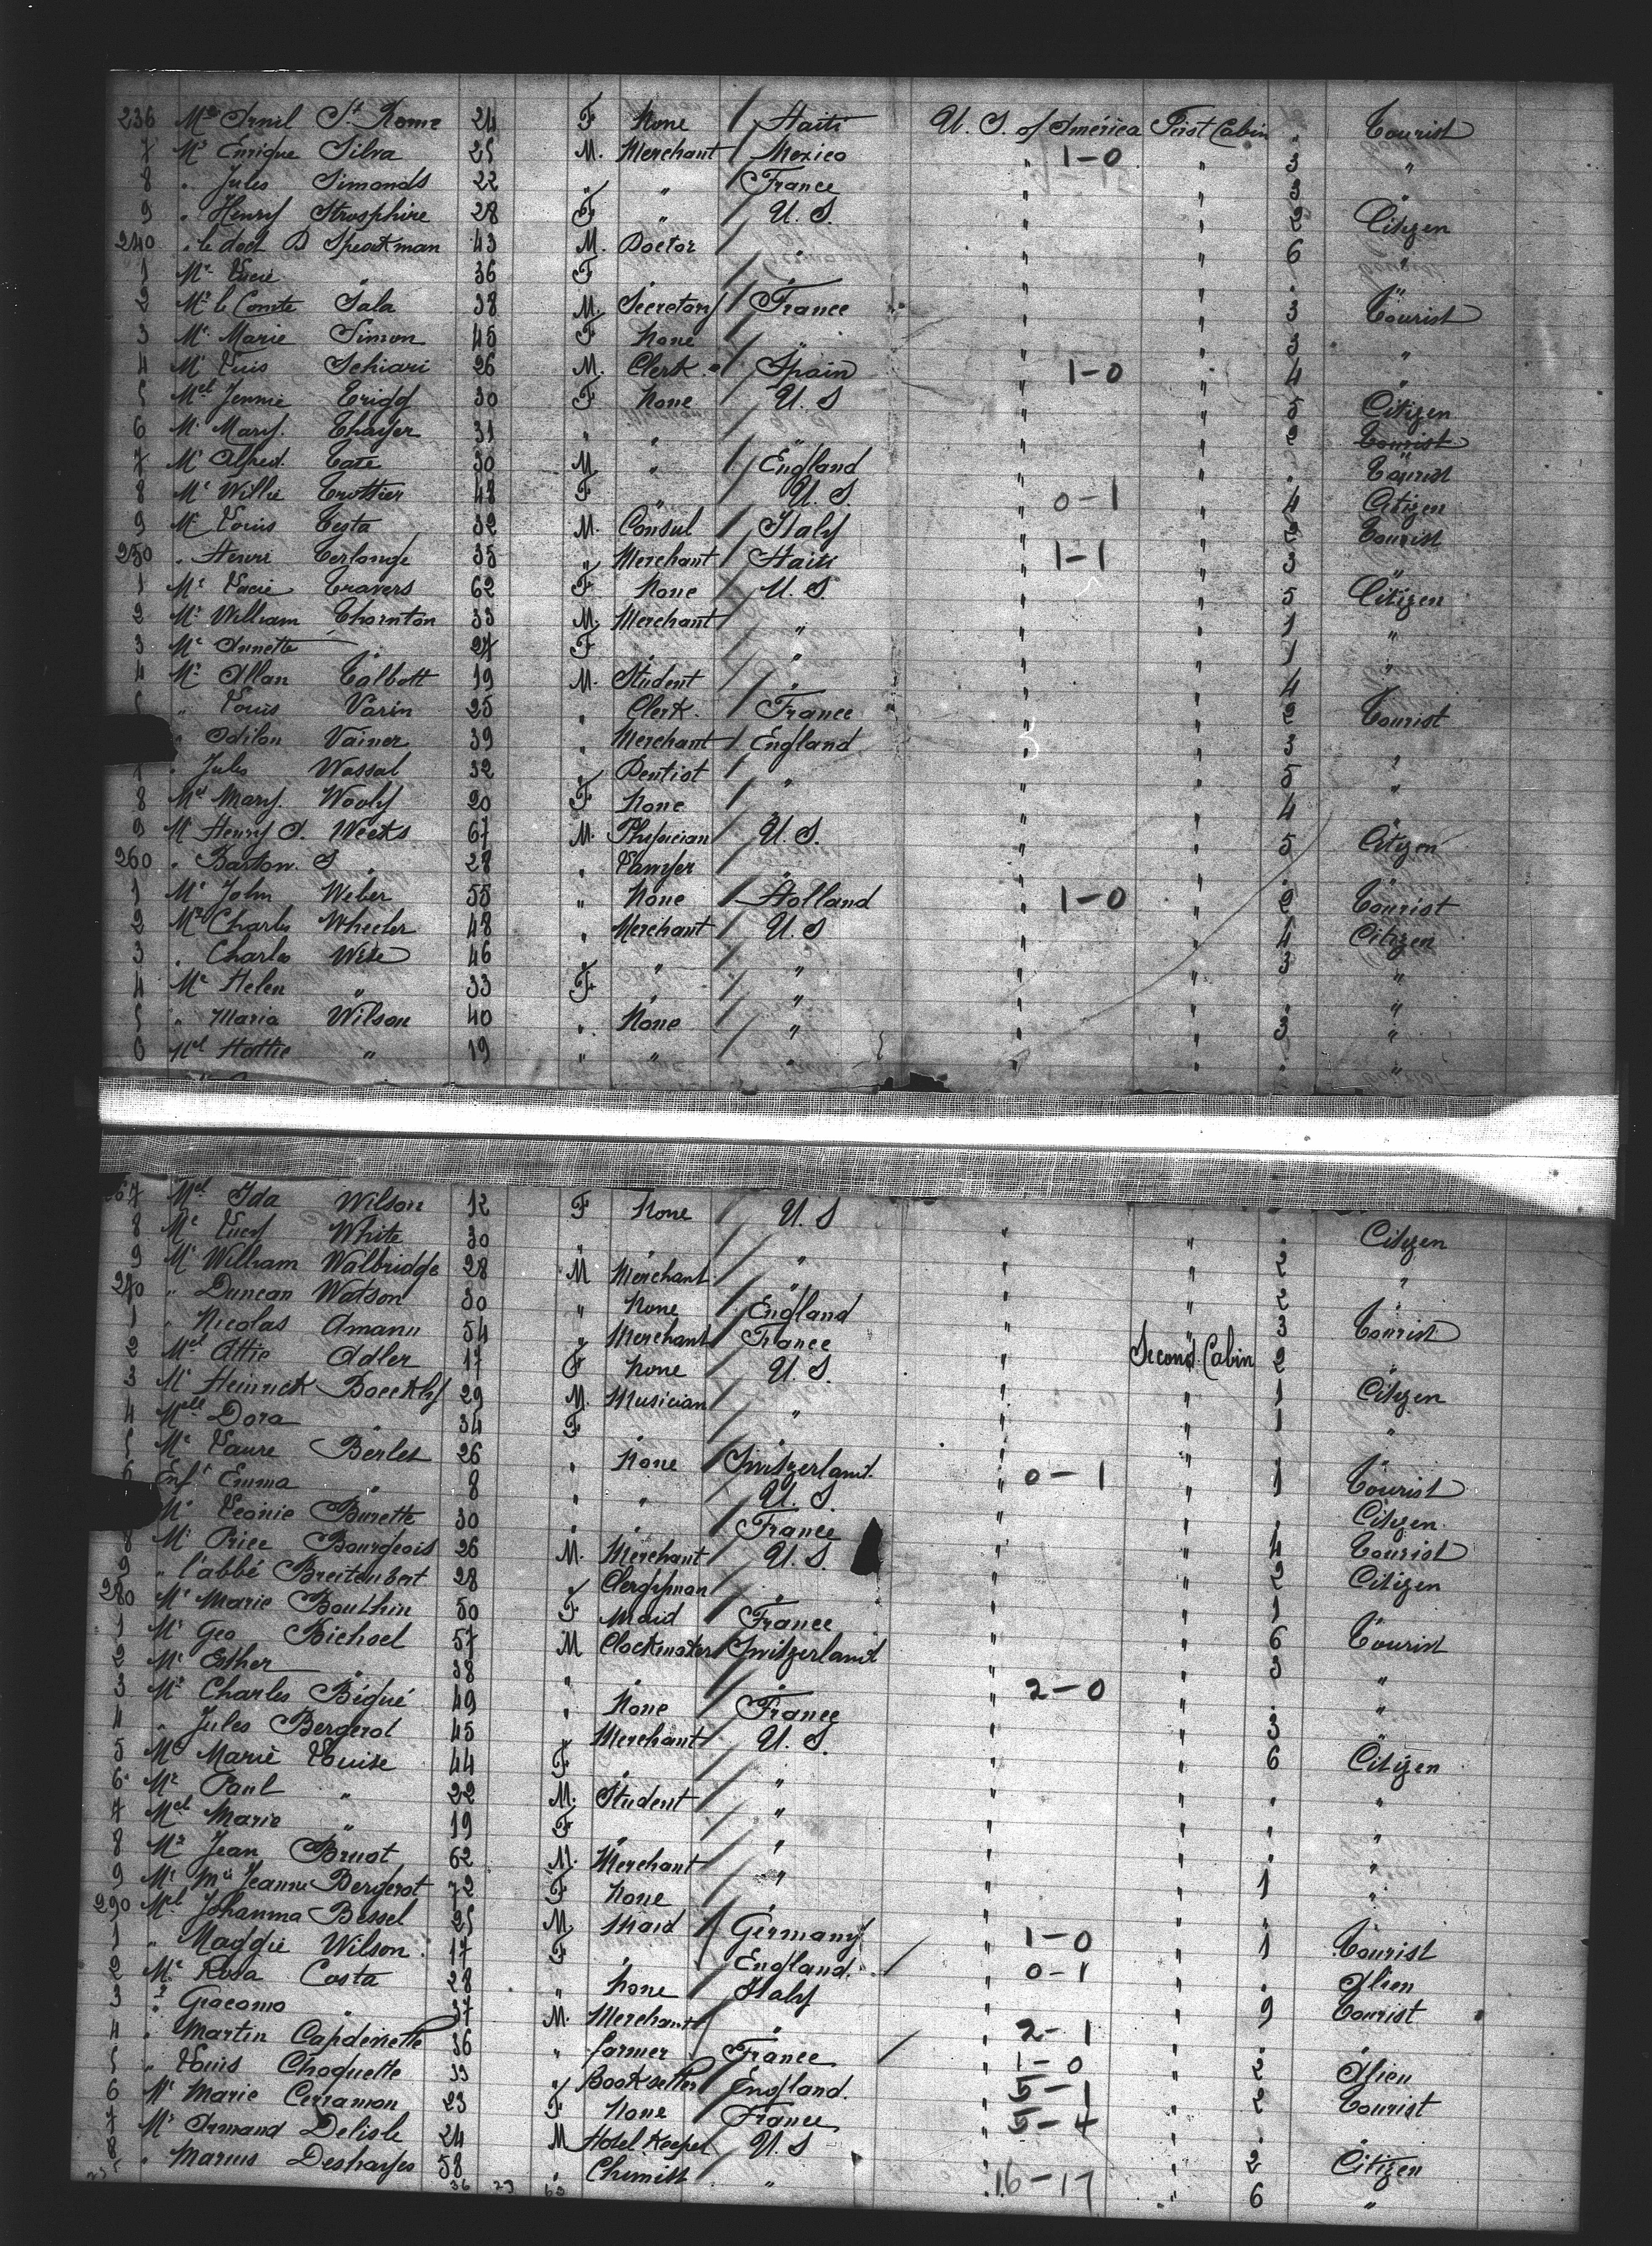 236 Me St Rome 24 F None Haïti U. S. of America First Cabin " Tourist
7 Mr Enrique Silva 25 M. Merchant Mexico " 1-0 " 3 "
8 " Jules Simonds 22 " " France " " 3 "
9 " Henry Strosphire 28 F " U. S. " " 2 Citizen
240 " le doct B Speakman 43 M. Doctor " " " 6 "
1 Me Lucie " 36 F " " " " " "
2 Mr le Comte Sala 38 M. Secretary France " " 3 Tourist
3 Me Marie Simon 45 F None " " " 3 "
4 Mr Luis Schiari 26 M. Clerk Spain " 1-0 " 4 "
5 Mel Jennie Trigg 30 F None U. S " " 5 Citizen
6 Me Mary Thayer 31 " " " " " 2 Tourist
7 Mr Alfred Tate 30 M " England " " " Tourist
8 Me Willie Trottier 48 F " U. S. " 0-1 " 4 Citizen
9 Mr Louis Testa 32 M. Consul Italy " " 2 Tourist
250 " Henri Terlonge 35 " Merchant Haïti " 1-1 " 3 "
1 Me Lucie Travers 62 F None U. S. " " 5 Citizen
2 Mr William Thornton 33 M. Merchant " " " 1 "
3 Me Annette " 27 F " " " " 1 "
4 Mr Allan Talbott 19 M. Student " " " 4 "
5 " Louis Varin 25 " Clerk. France " " 2 Tourist
" Odilon Vainer 39 " Merchant England " " 3 "
" Jules Wassal 32 " Dentist " " " 5 "
8 Mel Mary Wooly 20 F None " " " 4 "
9 Mr Henry A. Weeks 67 M. Physician U. S. " " 5 Citizen
260 " Barton. S. " 28 " Lawyer " " " " "
1 Mr John Weber 55 " None Holland " 1-0 " 2 Tourist
2 Mr Charles Wheeler 48 " Merchant U. S " " 4 Citizen
3 " Charles Wise 46 " " " " " 3 "
4 Me Helen " 33 F " " " " " "
5 " Maria Wilson 40 " None " " " 3 "
6 Mel Hattie " 19 " " " " " " "
267 Mel Ida Wilson 12 F None U. S " " " Citizen
8 Me Lucy White 30 " " " " " 2 "
9 Mr William Walbridge 28 M Merchant " " " 2 "
270 " Duncan Watson 30 " None England " " 3 Tourist
1 " Nicolas Amann 54 " Merchant France " Second Cabin 2 "
2 Mel Attie Adler 17 F None U. S. " " 1 Citizen
3 Mr Heinrick Boeckly 29 M. Musician " " " 1 "
4 Melle Dora " 34 F " " " " " "
5 Me Laure Berlet 26 " None Switzerland " 0-1 " 1 Tourist
6 Enft Emma " 8 " " U. S. " " " Citizen
Me Léonie Burette 30 " " France " " 4 Tourist
8 Mr Price Bourgeois 26 M. Merchant U. S " " 2 Citizen
9 " l'abbé Breitenbert 28 " Clergyman " " " 1 "
280 Me Marie Bouthin 50 F Maid France " " 6 Tourist
1 Mr Geo Bichsel 57 M Clockmaker Switzerland " " 3 "
2 Me Esther " 38 " " " " 2-0 " " "
3 Mr Charles Bégué 49 " None France " " 3 "
4 " Jules Bergerot 45 " Merchant U. S. " " 6 Citizen
5 Me Marie Louise 44 F " " " " " "
6 Mr Paul " 22 M. Student " " " " "
7 Mel Marie " 19 F " " " " " "
8 Mr Jean Bruot 62 M. Merchant " " " 1 "
9 Me Mie Jeanne Bergerot 72 F None " " " " "
290 Mel Johanna Bessel 25 M. Maid Germany " 1-0 " 1 Tourist
1 " Maggie Wilson 17 F " England " 0-1 " " Alien
2 Me Rosa Costa 28 " None Italy " " 9 Tourist
3 " Giacomo " 37 M. Merchant " " 2-1 " " "
4 " Martin Capdeirette 36 " farmer France " 1-0 " 2 Alien
5 " Louis Choquette 33 " Bookseller England. " 5-1 " 2 Tourist
6 Me Marie Cerramon 23 F None France " 5-4 " " "
7 Mr Armand Delisle 24 M Hotel Keeper U. S " " 2 Citizen
8 " Marius Desharges 58 " Chemist " " 16-17 " 6 "
36 29 63